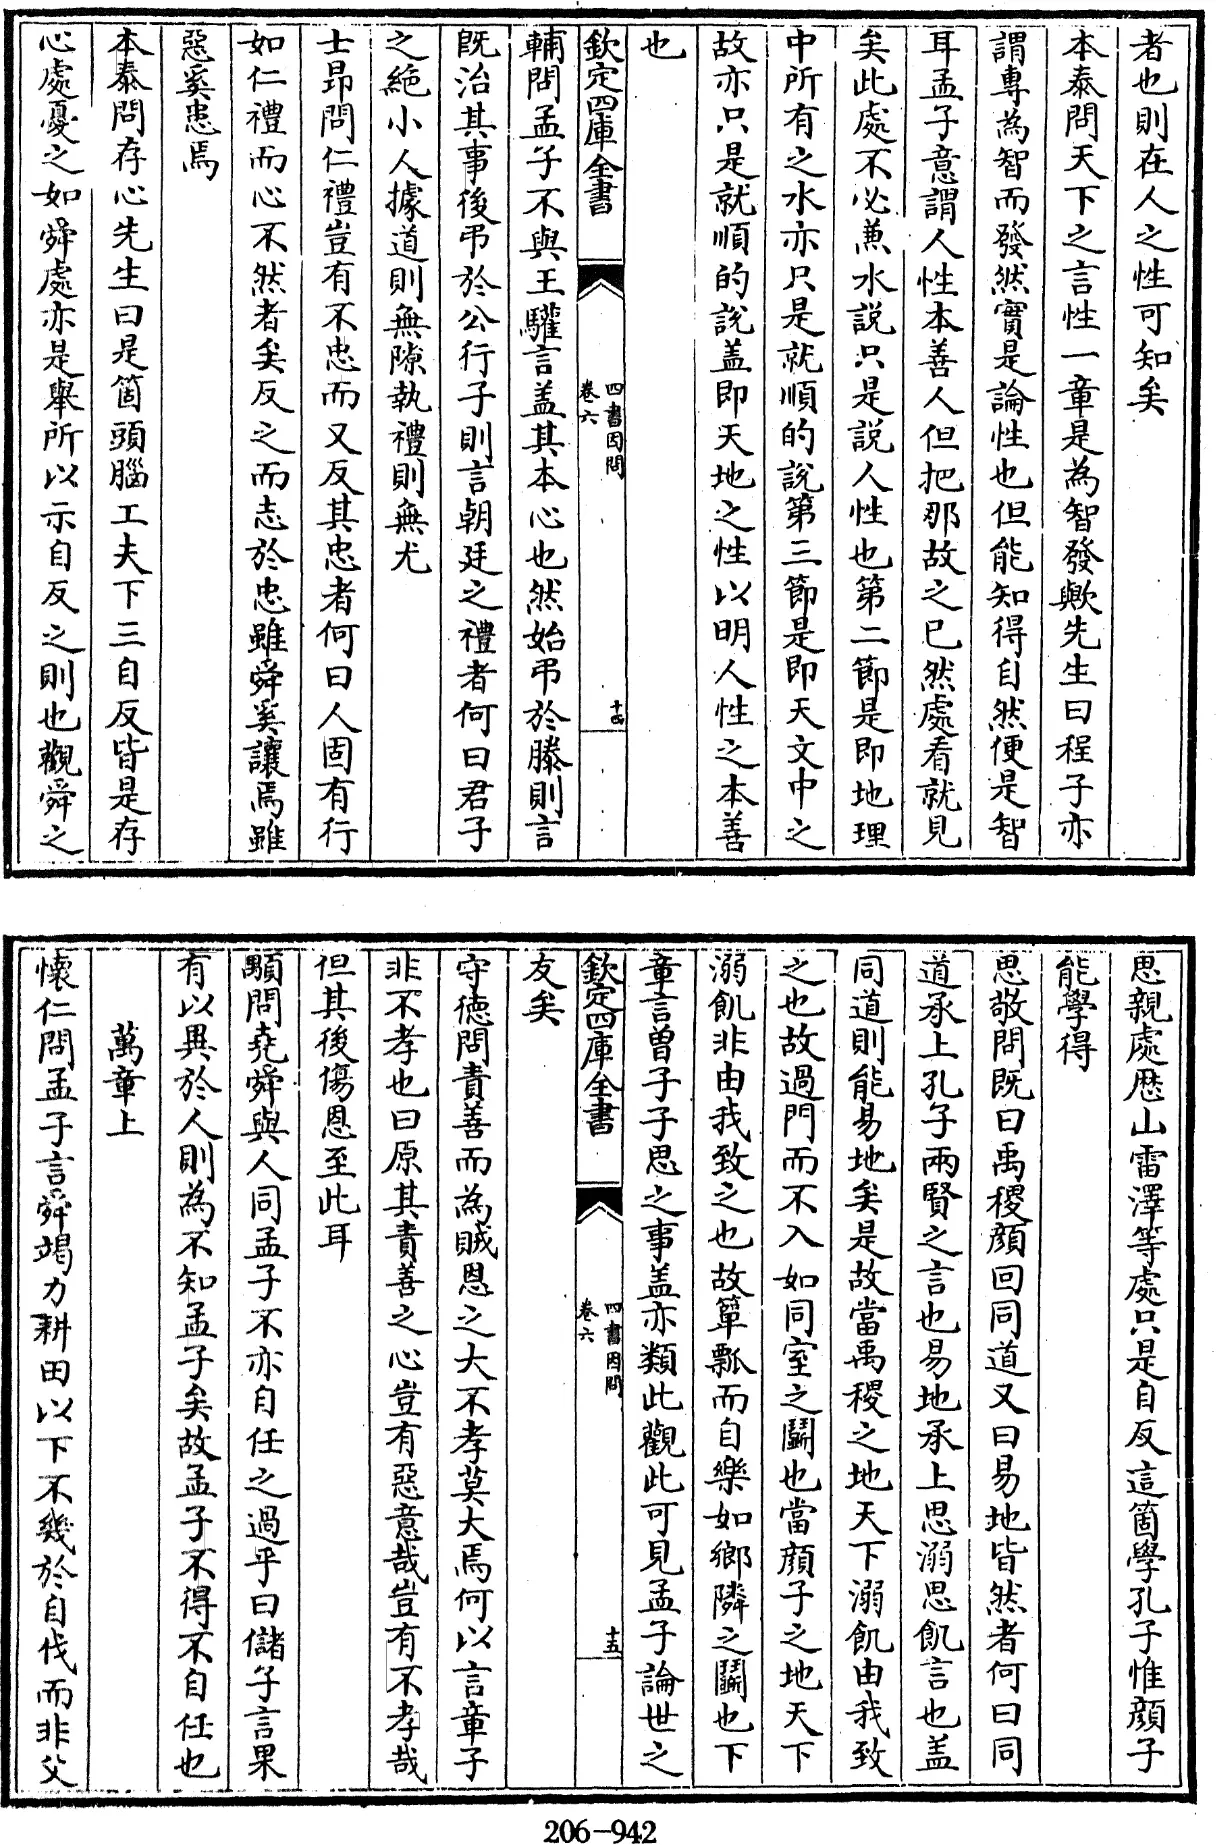 者也則在人之性可知矣
本泰問天下之言性一章是為智發歟先生曰程子亦
謂專為智而發然實是論性也但能知得自然便是智
耳孟子意謂人性本善人但把那故之已然處看就見
矣此處不必兼水說只是說人性也第二節是即地理
中所有之水亦只是就順的說第三節是即天文中之
故亦只是就順的說盖即天地之性以明人性之本善
也
欽定四庫全書
四書因問
卷六
十四
輔問孟子不與王驩言盖其本心也然始弔於滕則言
既治其事後弔於公行子則言朝廷之禮者何曰君子
之絶小人據道則無隙執禮則無尤
士昂問仁禮豈有不忠而又反其忠者何曰人固有行
如仁禮而心不然者矣反之而志於忠雖舜奚讓焉雖
惡奚患焉
本泰問存心先生曰是箇頭腦工夫下三自反皆是存
心處憂之如舜處亦是舉所以示自反之則也觀舜之
思親處厯山雷澤等處只是自反這箇學孔子惟顔子
能學得
思敬問既曰禹稷顔回同道又曰易地皆然者何曰同
道承上孔子兩賢之言也易地承上思溺思飢言也盖
同道則能易地矣是故當禹稷之地天下溺飢由我致
之也故過門而不入如同室之鬭也當顔子之地天下
溺飢非由我致之也故簞瓢而自樂如鄉隣之鬭也下
章言曽子子思之事盖亦類此觀此可見孟子論世之
友矣
欽定四庫全書
四書因問
卷六
十五
守徳問責善而為賊恩之大不孝莫大焉何以言章子
非不孝也曰原其責善之心豈有惡意哉豈有不孝哉
但其後傷恩至此耳
顒問堯舜與人同孟子不亦自任之過乎曰儲子言果
有以異於人則為不知孟子矣故孟子不得不自任也
萬章上
懷仁問孟子言舜竭力耕田以下不幾於自伐而非父
206-942